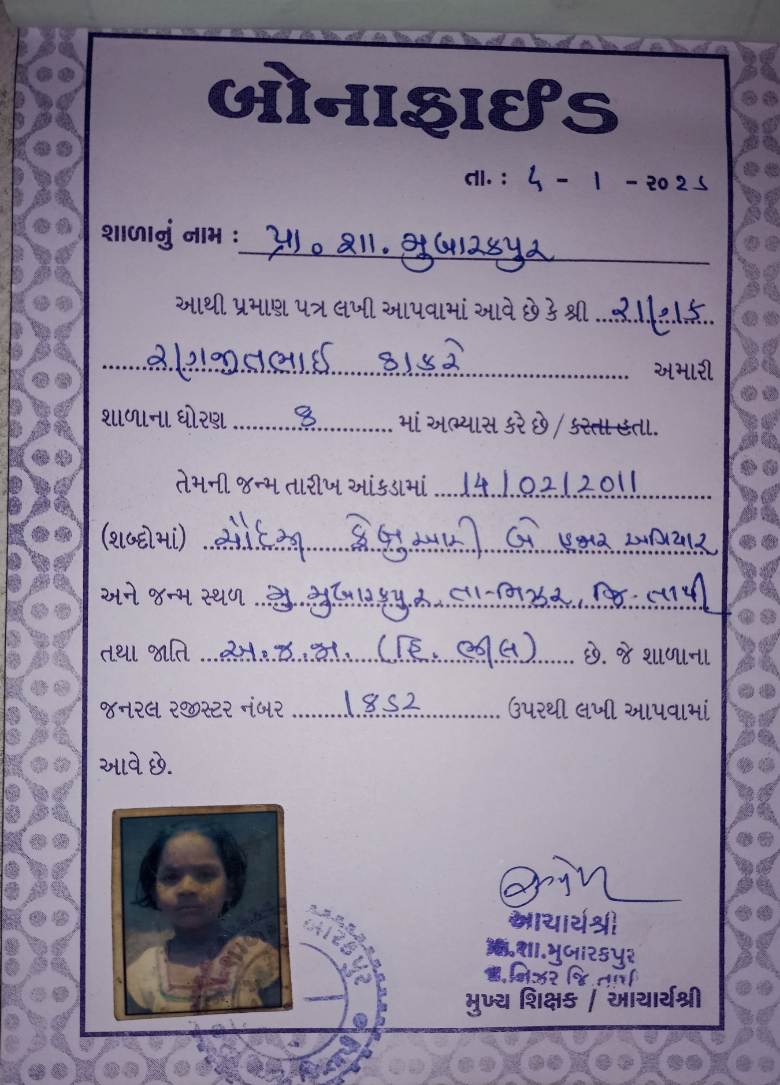 બોનાફાઈડ
તા. : ૬ - ૧ - ૨૦૨
શાળાનું નામ : પ્રા. શા. મુબારકપુર
આથી પ્રમાણ પત્ર લખી આપવામાં આવે છે કે શ્રી
ઠાકરે અમારી
શાળાના ધોરણ માં અભ્યાસ કરે છે / કરતા હતા.
તેમની જન્મ તારીખ આંકડામાં 14/02/2011
(શબ્દોમાં) ચૌદમી ફેબ્રુઆરી બે હજાર અગિયાર
અને જન્મ સ્થળ મુ. મુબારકપુર, તા-નિઝર, જિ-તાપી
તથા જાતિ અ.જ.જા. (હિ. ભીલ) છે. જે શાળાના
જનરલ રજીસ્ટર નંબર ઉપરથી લખી આપવામાં
આવે છે.
બારકપુર
આચાર્યશ્રી
પ્રા.શા.મુબારકપુર
તા.નિઝર જિ.તાપી
મુખ્ય શિક્ષક / આચાર્યશ્રી